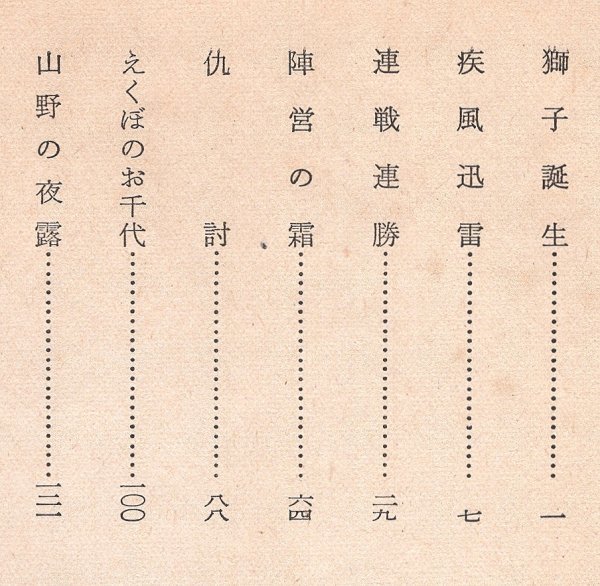 獅子誕生……………………一
疾風迅雷……………………七
連戦連勝……………………二九
陣営の霜……………………六四
仇討……………………八八
えくぼのお千代……………………一〇〇
山野の夜露……………………一二一